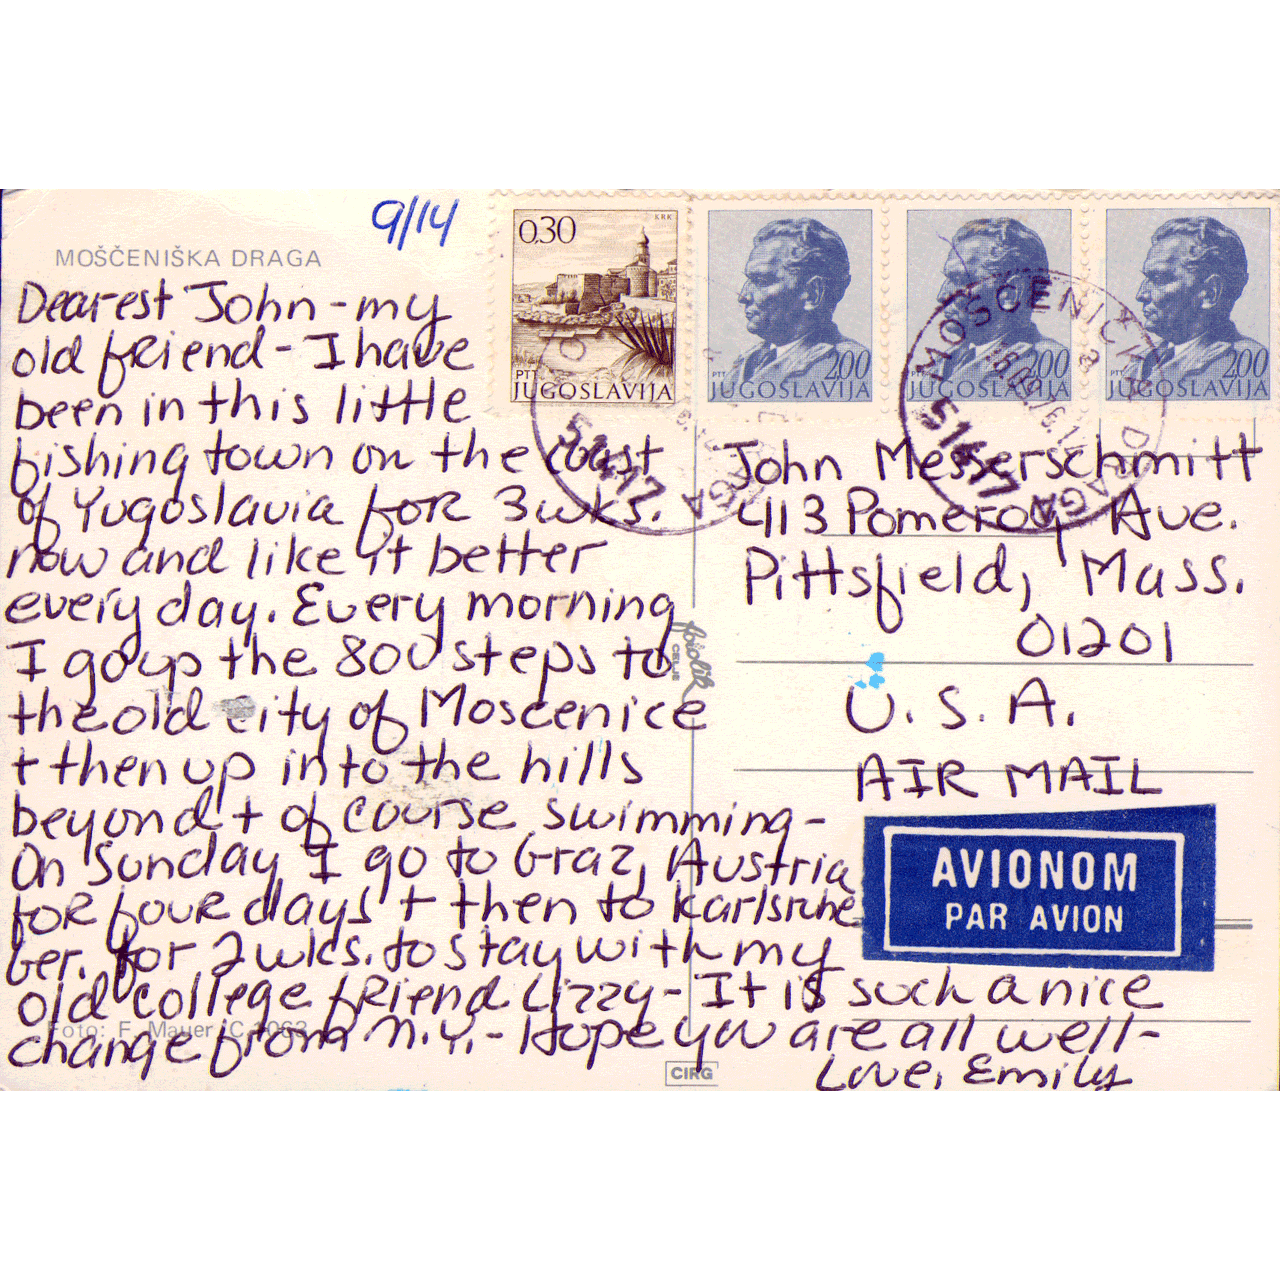 9/14
MOŠČENIŠKA DRAGA
Dearest John - my
old friend - I have
been in this little
fishing town on the coast
of Yugoslavia for 3 wks.
now and like it better
every day. Every morning
I go up the 800 steps to
the old city of Moscenice
+ then up into the hills
beyond + of course swimming -
On Sunday I go to Graz, Austria
for four days + then to Karlsruhe
Ger. for 2 wks. to stay with my
old college friend Lizzy - It is such a nice
change from N.Y. - Hope you are all well -
Love, Emily
Foto: F. Mauer C 1063
CIRG
CELJE
0.30
KRK
PTT
JUGOSLAVIJA
2.00
PTT
JUGOSLAVIJA
2.00
PTT
JUGOSLAVIJA
2.00
PTT
JUGOSLAVIJA
51417
MOŠĆENIČKA DRAGA
51417
John Messerschmitt
413 Pomeroy Ave.
Pittsfield, Mass.
01201
U.S.A.
AIR MAIL
AVIONOM
PAR AVION